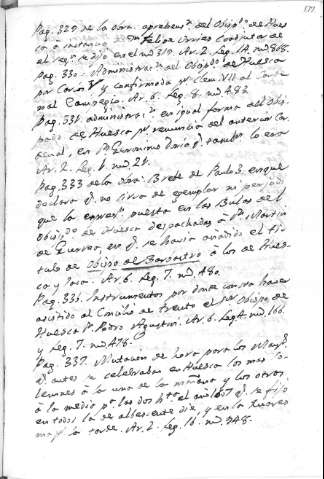 177
Pag. 329 de la obra. aprobacn. del Obisp.o de Hues
ca a instancia de Felipe Urries
el Rey. se dio en el nu.o 319. Ar. 2. Leg. 14. nu.o 868.
Pag. 330. Administracn. del Obispdo. de Huesca
por Carlos V. y confirmada pr. Clem. VII al Carde
nal Campegio. Ar. 6. Leg. 8. nu.o 492.
Pag. 331. administracn. en igual forma del Obis
pado de Huesca pr. renuncia del anterior Car
denal, en Dn. Geronimo Doria q. tambn. lo era
Ar. 2. Leg. 1. nu.o 21.
Pag. 333 de la obra: Breve de Paulo 3. en que
declara q. no sirva de exemplar ni perjudi
que la conserv. puesta en las Bulas del
Obispdo. de Huesca despachadas a Dn. Martin
de Guerrea, en q. se havia añadido el ti
tulo de Obispo de Barbastro à los de Hues
ca y Jaca. Ar. 6. Leg. 7. nu.o 480.
Pag. 336. Instrumentos por donde consta haver
asistido al Concilio de Trento el Sr. Obispo de
Huesca Dn. Pedro Agustin. Ar. 6. Leg. 4. nu.o 166.
y Leg. 7. nu.o 478.
Pag. 337. Mutacion de hora para los Mayts.
q. antes se celebravan en Huesca los mas so
lemnes à la una de la mañana y los otros
à la media pa. las dos hta. el año q. se fijo
en todos la de alles. este dia, y en la
ma. y la tarde. Ar. 2. Leg. 16. nu.o 948.